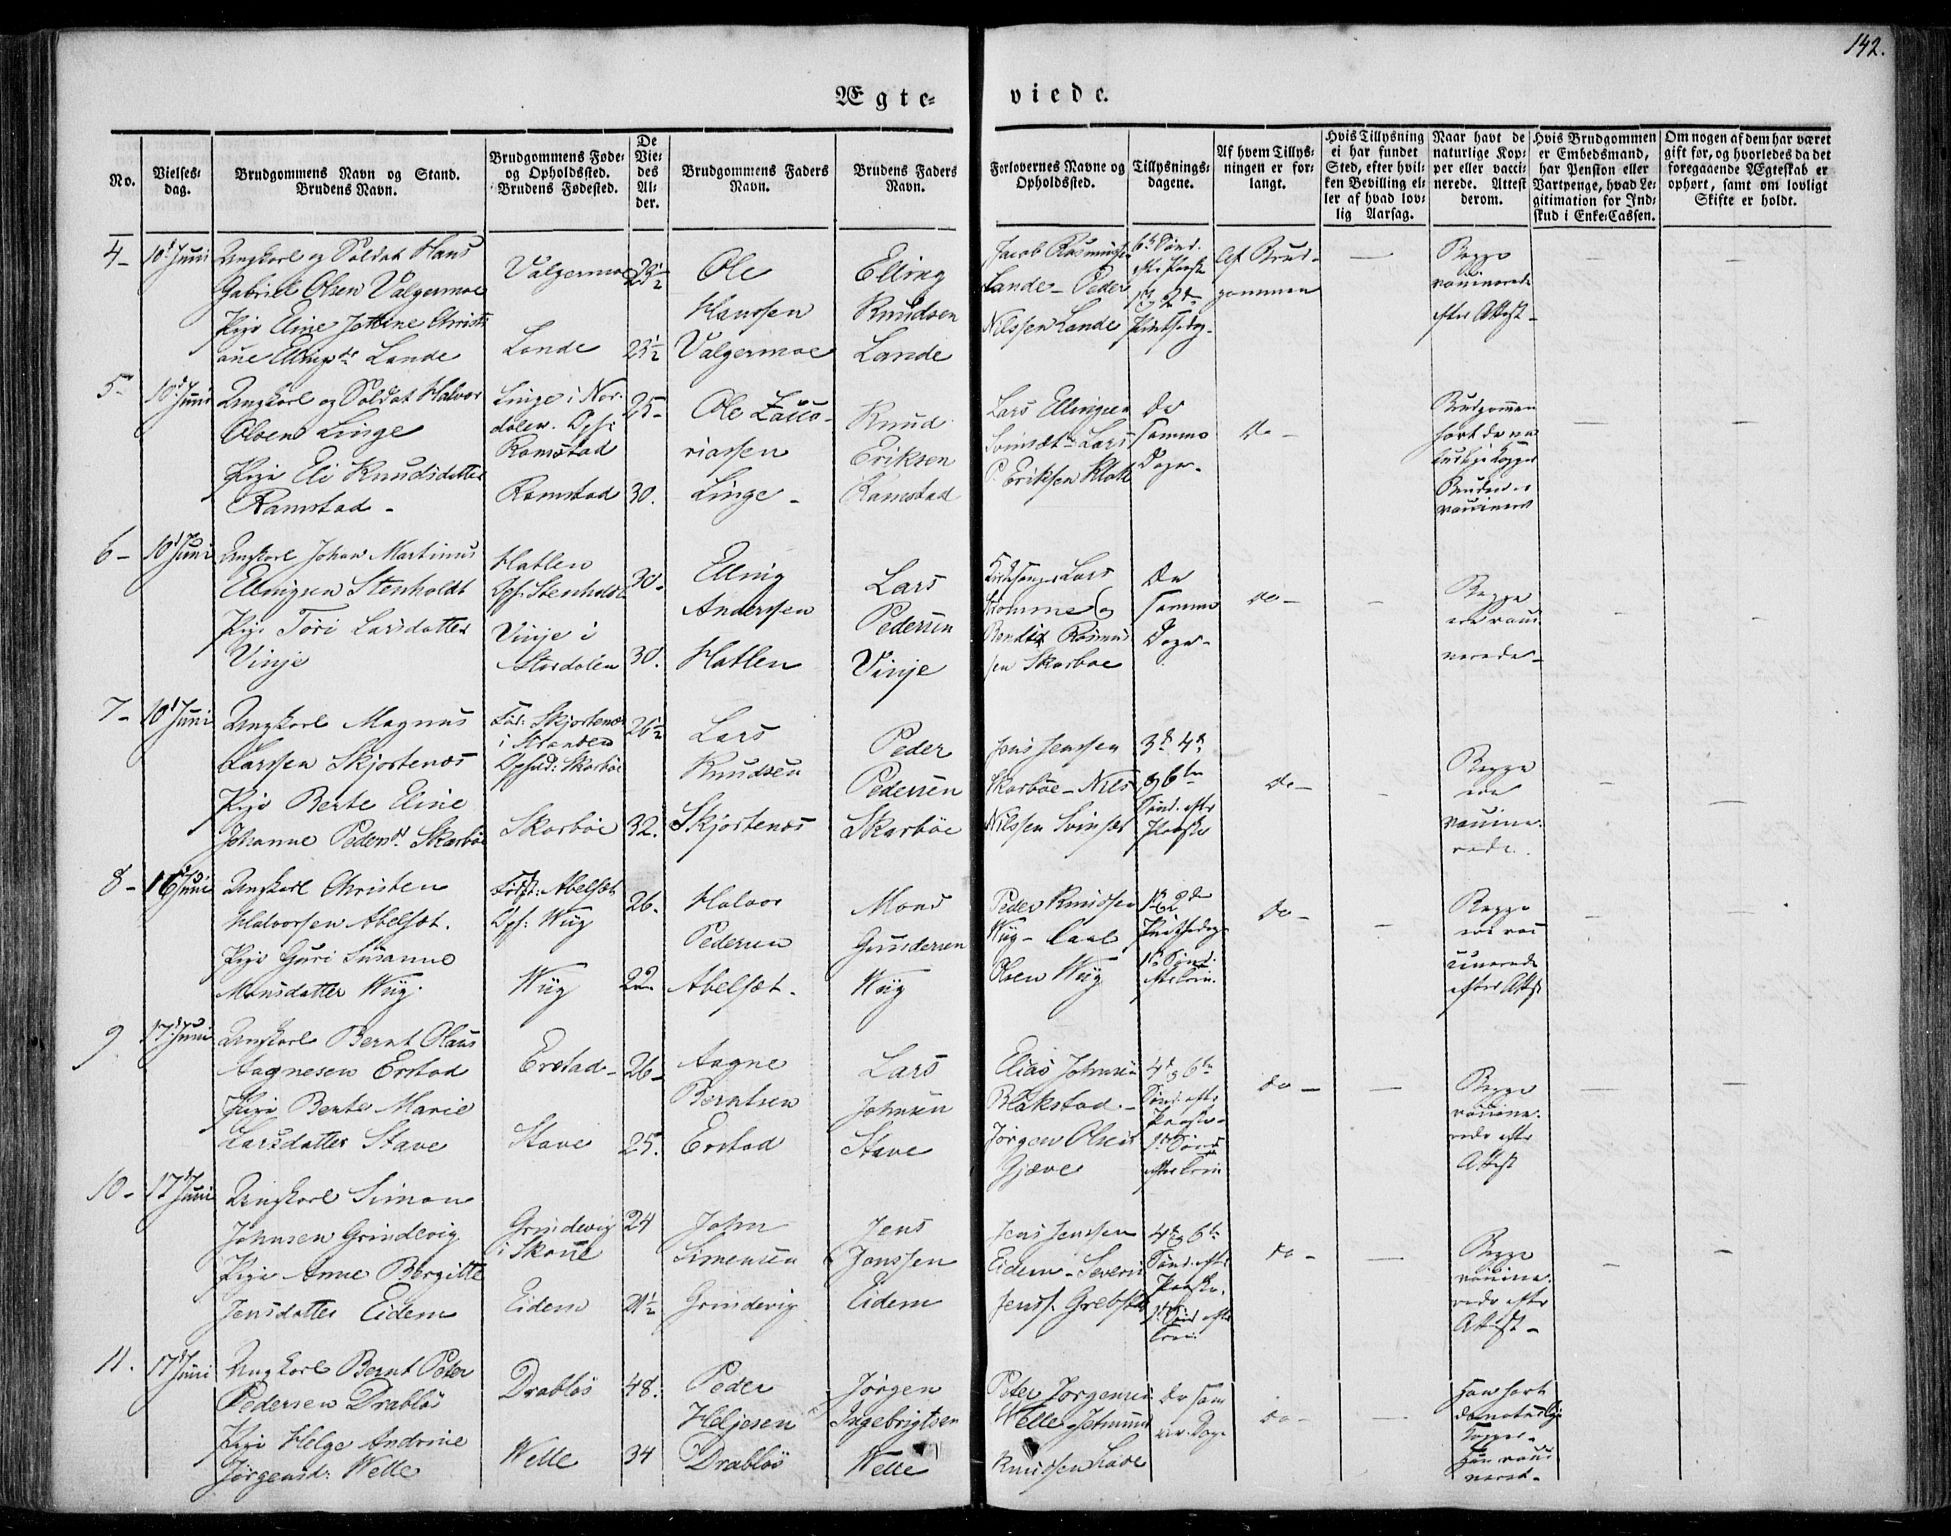 142.
Ægte-
viede.
No.
Vielses-
dag.
Brudgommens Navn og Stand.
Brudens Navn.
Brudgommens Føde-
og Opholdssted.
Brudens Fødested.
De
Vie-
des
Al-
der.
Brudgommens Faders
Navn.
Brudens Faders
Navn.
Forlovernes Navne og
Opholdssted.
Tillysnings-
dagene.
Af hvem Tillys-
ningen er for-
langt.
Hvis Tillysning
ei har fundet
Sted, efter hvil-
ken Bevilling el-
ler af hvad lov-
lig Aarsag.
Naar havt de
naturlige Kop-
per eller vacci-
nerede. Attest
derom.
Hvis Brudgommen
er Embedsmand,
har Pension eller
Vartpenge, hvad Le-
gitimation for Ind-
skud i Enke-Cassen.
Om nogen af dem har været
gift før, og hvorledes da det
foregaaende Ægteskab er
ophørt, samt om lovligt
Skifte er holdt.
4-
10d Juni
Ungkarl og Soldat Hans
Gabriel Olsen Valgermoe
Pige Eline Jottine Christi
ane Ellingsdr Lande
Valgermoe
Lande
23½
25½
Ole
Hanssen
Valgermoe
Elling
Knudsen
Lande
Jacob Rasmussen
Lande - Peder
Nilssen Lande
6te Sønd.
efter Paaske
1ste og 2den
Pintsedag.
Af Brud-
gommen
Begge
vaccinerede
efter Attest -
5-
10d Juni
Ungkarl og Soldat Halvor
Olsen Linge
Pige Eli Knudsdatter
Ramstad -
Linge i Nor-
dalen. Opf:
Ramstad
Ramstad
25-
30.
Ole Zacca-
riassen
Linge -
Knud
Eriksen
Ramstad
Lars Ellingsen
Svinset Lars
P. Eriksen Klok
De
samme
Dage.
do -
Brudgommen
havt de na
turlige Kopper
Bruden er
vaccineret
6-
10d Juni
Ungkarl Johan Martinus
Ellingsen Stenholdt
Pige Tøri Larsdatter
Vinje
Hatlen
Opf: Stenholdt
Vinje i
Stordalen
30-
30.
Elling
Anderssen
Hatlen
Lars
Pedersen
Vinje
Kirkesanger Lars
Stomme og
Bendix Rasmus
sen Skarboe
De
samme
Dage -
do -
Begge
ere vacci
nerede -
7-
10d Juni
Ungkarl Magnus
Larssen Skjortenæs
Pige Berte Eline
Johanne Pedersd. Skarbøe
Fød: Skjortenæs
i Stranden
Opfød: Skarbøe
Skarbøe
26½
32.
Lars
Knudsen
Skjortenæs
Peder
Pedersen
Skarbøe
Jens Jenssen
Skarbøe - Nils
Nilssen Svinset
3de 4de
og 6te
Sønd. efter
Paaske
do -
Begge
ere
vaccine-
rede.
8-
16d Juni
Ungkarl Christen
Halvorsen Abelset.
Pige Guri Susanne
Monsdatter Wiig.
Født: Abelset
Opf: Wiig
Wiig
26.
22.
Halvor
Pedersen
Abelset.
Mons
Gundersen
Wiig
Peder Knudsen
Wiig - Carl
Olsen Wiig
1ste og 2den
Pintsedag
1ste Sønd.
efter Trin.
do -
Begge
ere vac
cinerede
efter Attest
9
17d Juni
Ungkarl Bernt Olaus
Aagnesen Erstad
Pige Berte Marie
Larsdatter Stave
Erstad -
Stave
26-
25.
Aagne
Berntsen
Erstad
Lars
Johnsen
Stave
Elias Johnsen
Blakstad -
Jørgen Olsen
Gjæve
4de og 6te
Sønd. efter
Paaske.
1ste Sønd
efter Trin
do -
Begge
vaccine-
rede efter
Attest
10-
17d Juni
Ungkarl Simon
Johnsen Grindevig
Pige Anne Bergitte
Jensdatter Eidem
Grindevig
i Skoue
Eidem
24
21½
John
Simensen
Grindevig
Jens
Jonssen
Eidem
Jens Jenssen
Eidem - Severin
Jenss. Grebstad
4de og 6te
Sønd. efter
Paaske.
1ste Sønd efter
Trin.
do -
Begge
vaccine-
rede efter
Attest -
11.
17d Juni
Ungkarl Bernt Peter
Pedersen Drabløs
Pige Helge Andrine
Jørgensd: Welle
Drabløs
Welle
48.
34
Peder
Heljesen
Drabløs
Jørgen
Ingebrigtsen
Welle
Peter Jørgensen
Welle
Knudssen Lade
De sam
me Dage
do -
Han havt
de naturlige
Kopper -
Hun vacci
neret -